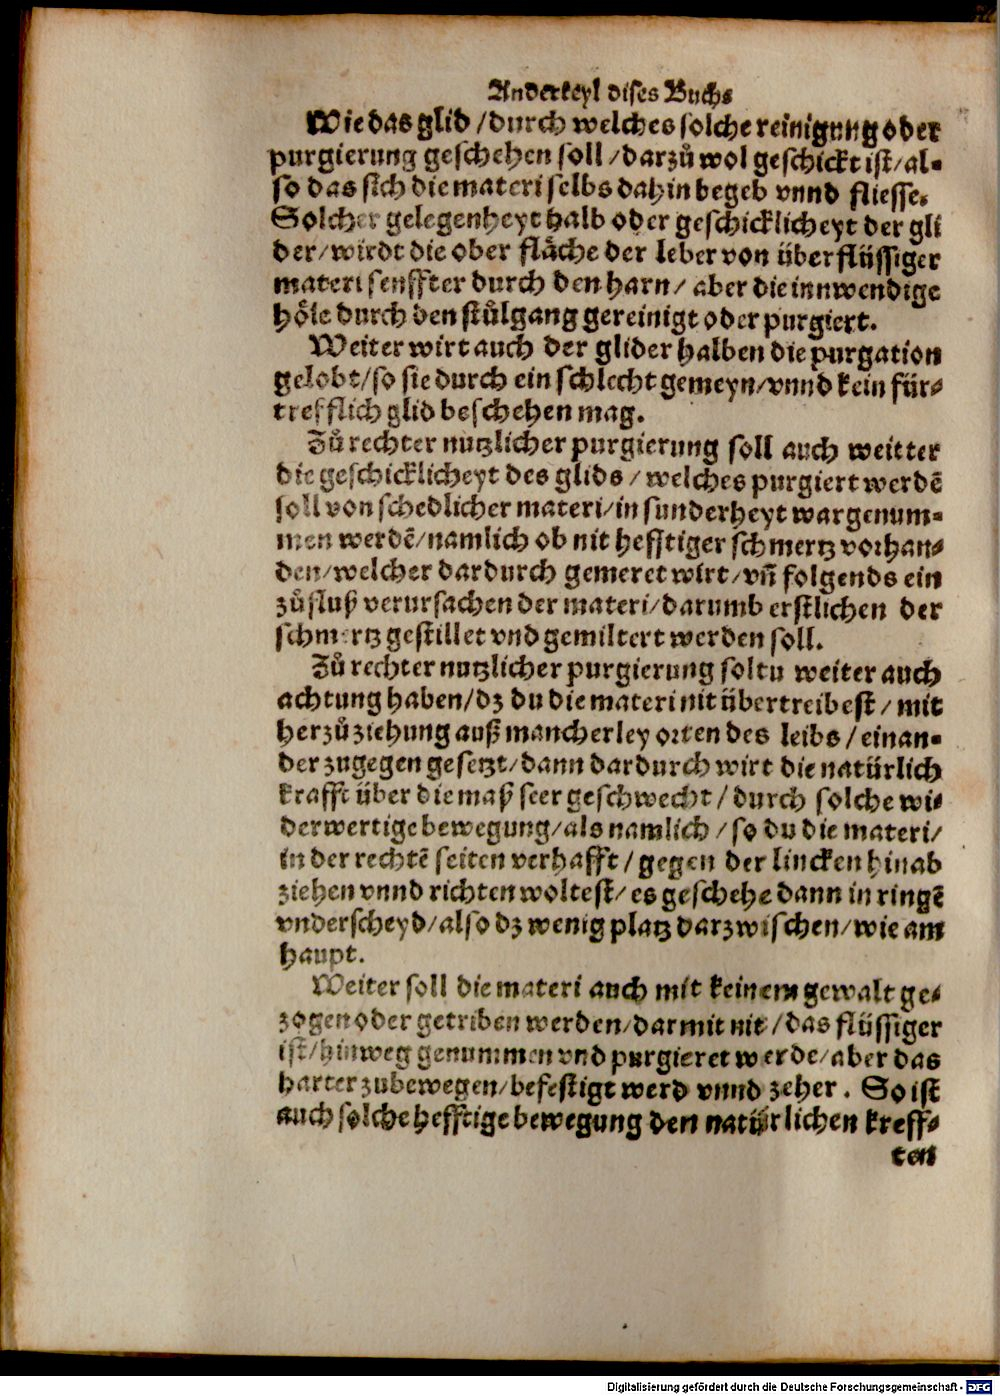 Anderteyl dises Buchs
Wie das glid / durch welches solche reinigung oder
purgierung geschehen soll / darzů wol geschickt ist / al-
so das sich die materi selbs dahin begeb vnnd fliesse.
Solcher gelegenheyt halb oder geschicklicheyt der gli
der / wirdt die ober fläche der leber von überflüssiger
materi senffter durch den harn / aber die innwendige
höle durch den stůlgang gereinigt oder purgiert.
Weiter wirt auch der glider halben die purgation
gelobt / so sie durch ein schlecht gemeyn / vnnd kein für-
trefflich glid beschehen mag.
Zů rechter nutzlicher purgierung soll auch weitter
die geschicklicheyt des glids / welches purgiert werdē
soll von schedlicher materi / in sunderheyt wargenum-
men werdē / namlich ob nit hefftiger schmertz vorhan-
den / welcher dardurch gemeret wirt / vn̄ folgends ein
zůfluß verursachen der materi / darumb erstlichen der
schmertz gestillet vnd gemiltert werden soll.
Zů rechter nutzlicher purgierung soltu weiter auch
achtung haben / dz du die materi nit übertreibest / mit
herzůziehung auß mancherley orten des leibs / einan-
der zugegen gesetzt / dann dardurch wirt die natürlich
krafft über die maß seer geschwecht / durch solche wi-
derwertige bewegung / als namlich / so du die materi /
in der rechtē seiten verhafft / gegen der lincken hinab
ziehen vnnd richten woltest / es geschehe dann in ringē
vnderscheyd / also dz wenig platz darzwischen / wie am
haupt.
Weiter soll die materi auch mit keinem gewalt ge-
zogen oder getriben werden / darmit nit / das flüssiger
ist / hinweg genummen vnd purgieret werde / aber das
harter zubewegen / befestigt werd vnnd zeher. So ist
auch solche hefftige bewegung den natürlichen kreff-
ten
Digitalisierung gefördert durch die Deutsche Forschungsgemeinschaft - DFG